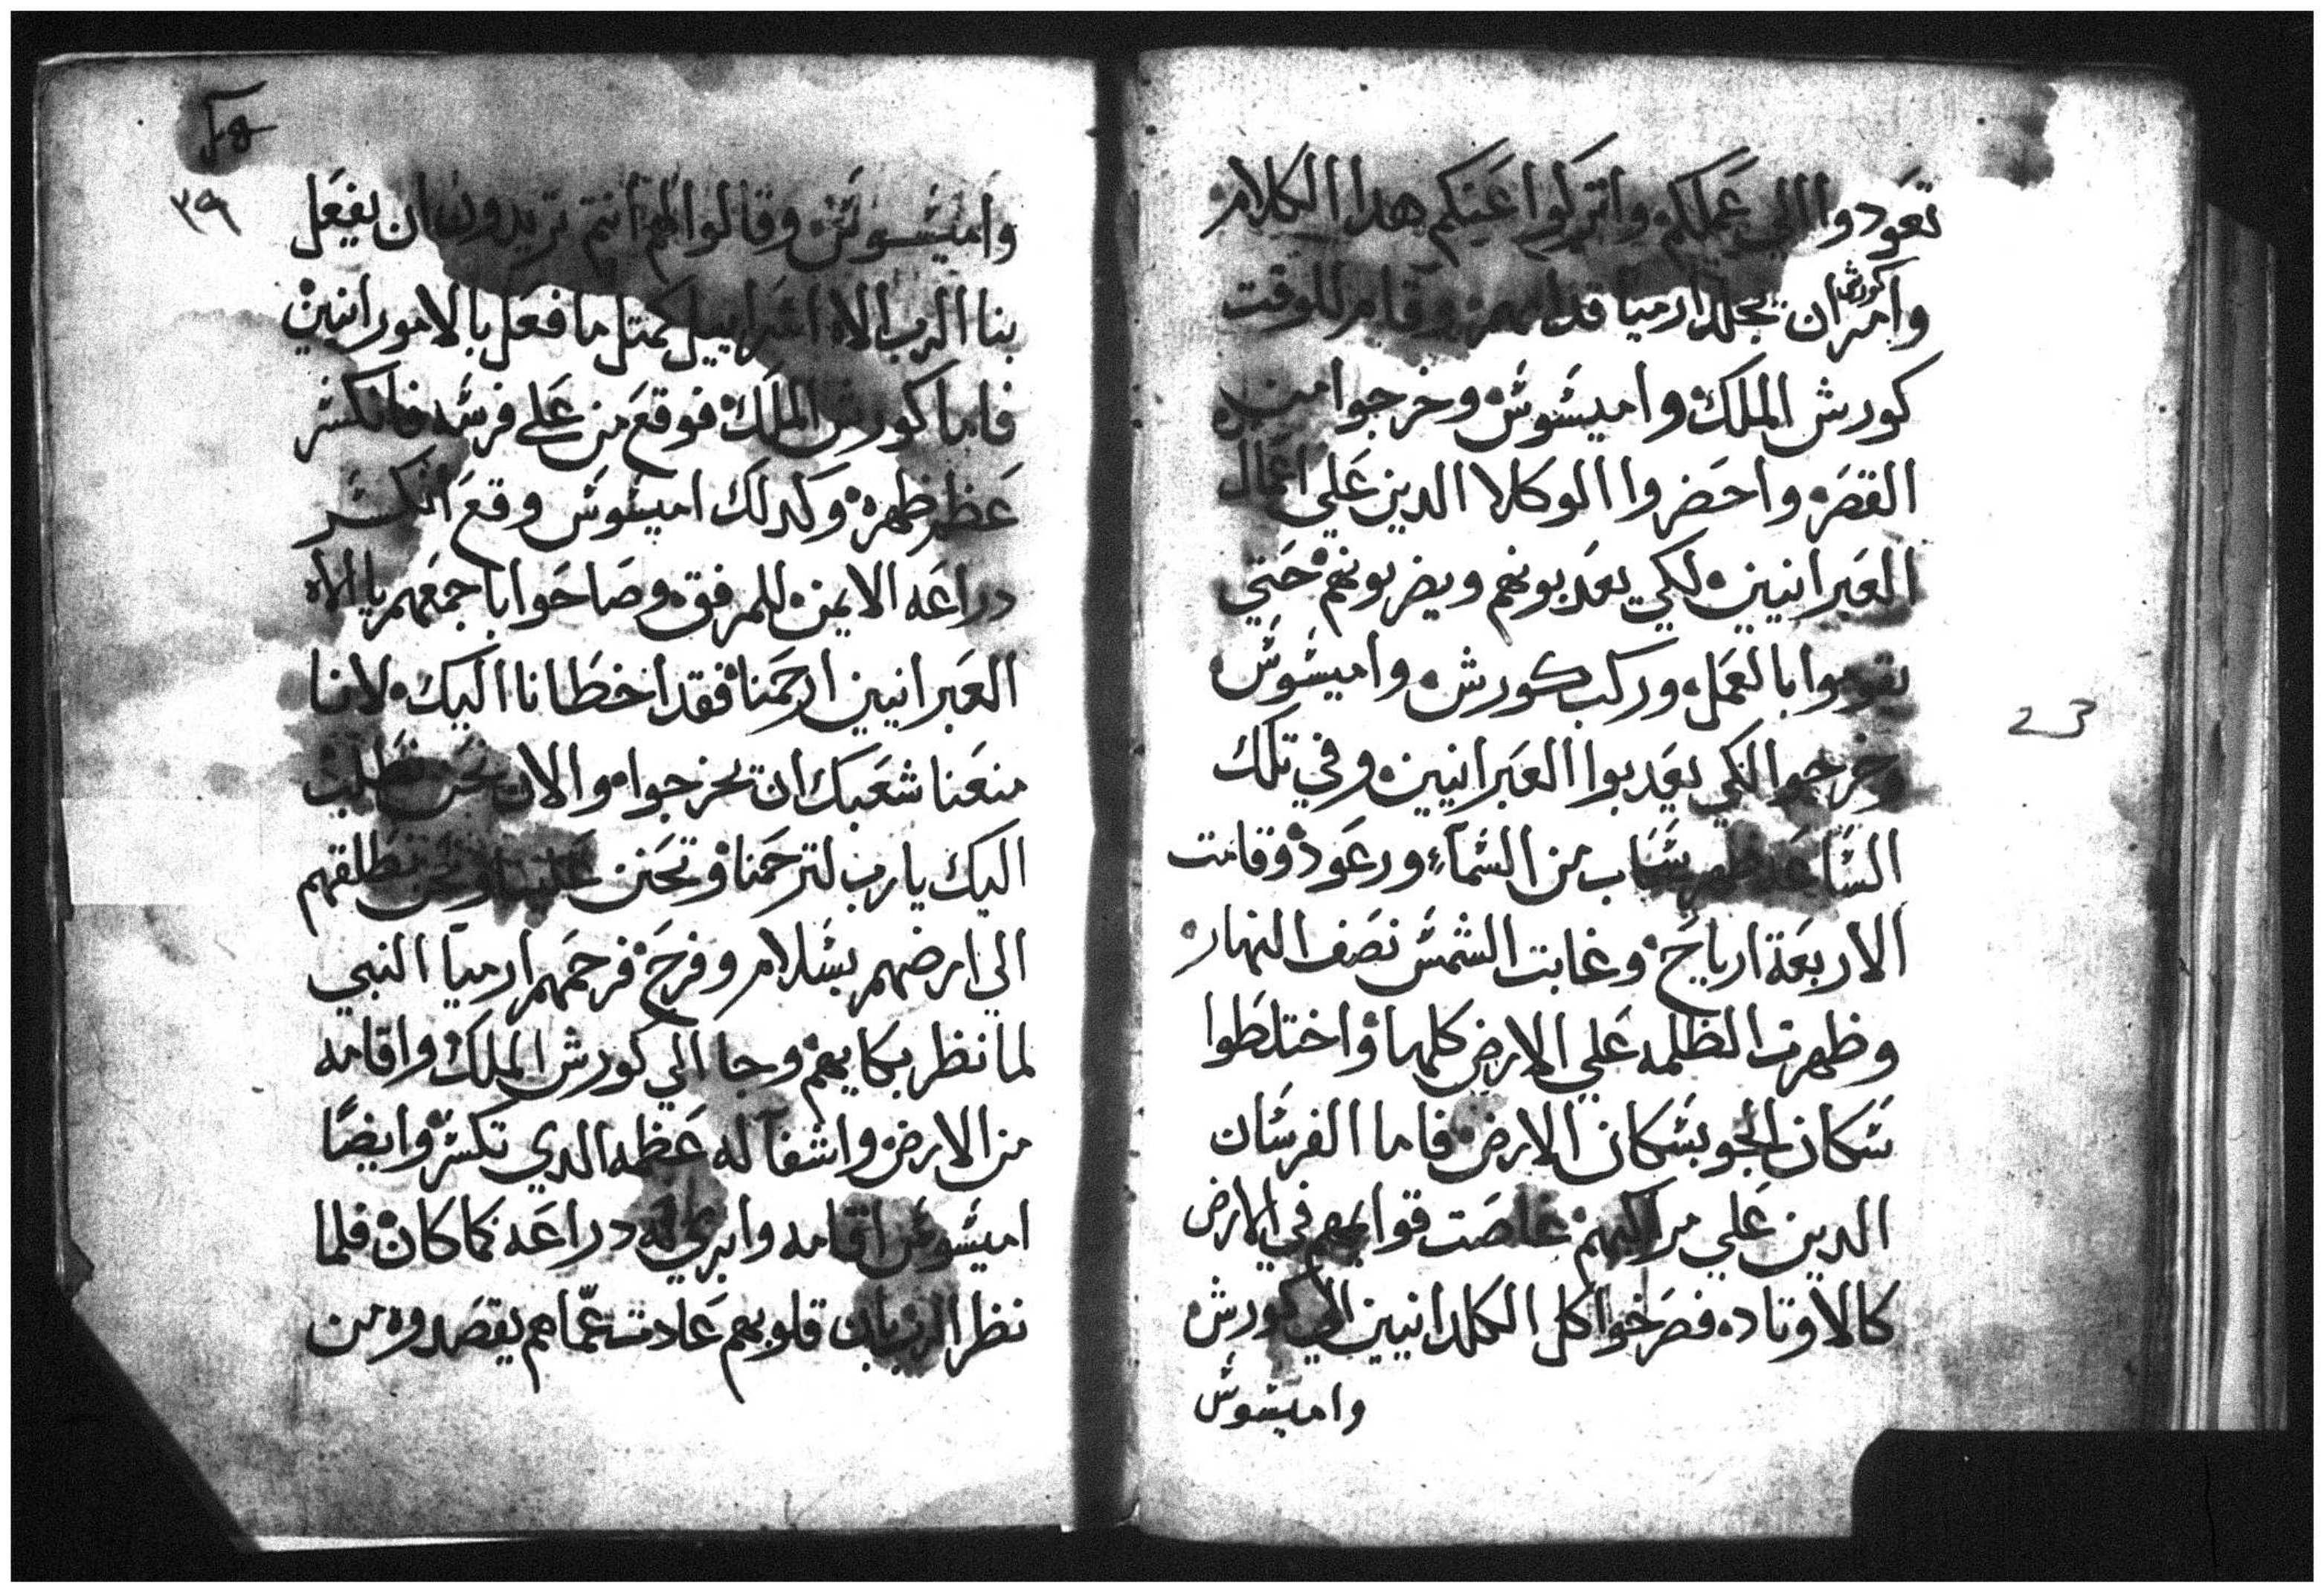 تعودوا الي عملكم واتركوا عنكم هدا الكلام
وامر كورش ان يجلد ارميا قدامهم وقام للوقت
كورش الملك واميشوش وخرجوا من
القصر واحضروا الوكلا الدين علي اعمال
العبرانيين لكي يعدبونهم ويضربونهم حتي
يقوموا بالعمل وركب كورش واميشوش
وخرجوا لكي يعدبوا العبرانيين وفي تلك
الساعه ظهر سحاب من السمآء ورعود وقامت
الاربعة ارياح وغابت الشمش نصف النهار
وظهرت الظلمه علي الارض كلها واختلطوا
شكان الجو بشكان الارض فاما الفرشان
الدين علي مراكبهم غاصت قوايمهم في الارض
كالاوتاد فصرخوا كل الكلدانيين الي كورش
واميشوش
٣٩
واميشوش وقالوا لهم انتم تريدون ان يفعل
بنا الرب الاه اشراييل كمتل ما فعل بالاموراننين
فاما كورش الملك فوقع من علي فرشه فانكشر
عظم ظهره وكدلك اميشوش وقع انكشر
دراعه الايمن للمرفق وصاحوا باجمعهم يا الاه
العبرانيين ارحمنا فقد اخطانا اليك لاننا
منعنا شعبك ان يخرجوا والان نحن نطلب
اليك يارب لترحمنا وتحنن علينا ونحن نطلقهم
الي ارضهم بشلام وفرح فرحمهم ارميآ النبي
لما نظر بكايهم وجا الي كورش الملك واقامه
من الارض واشفا له عظمه الدي تكشر وايضًا
اميشوش اقامه وابري له دراعه كما كان فلما
نظر الرب بان قلوبهم عادت عمّاهم يقصدوه من